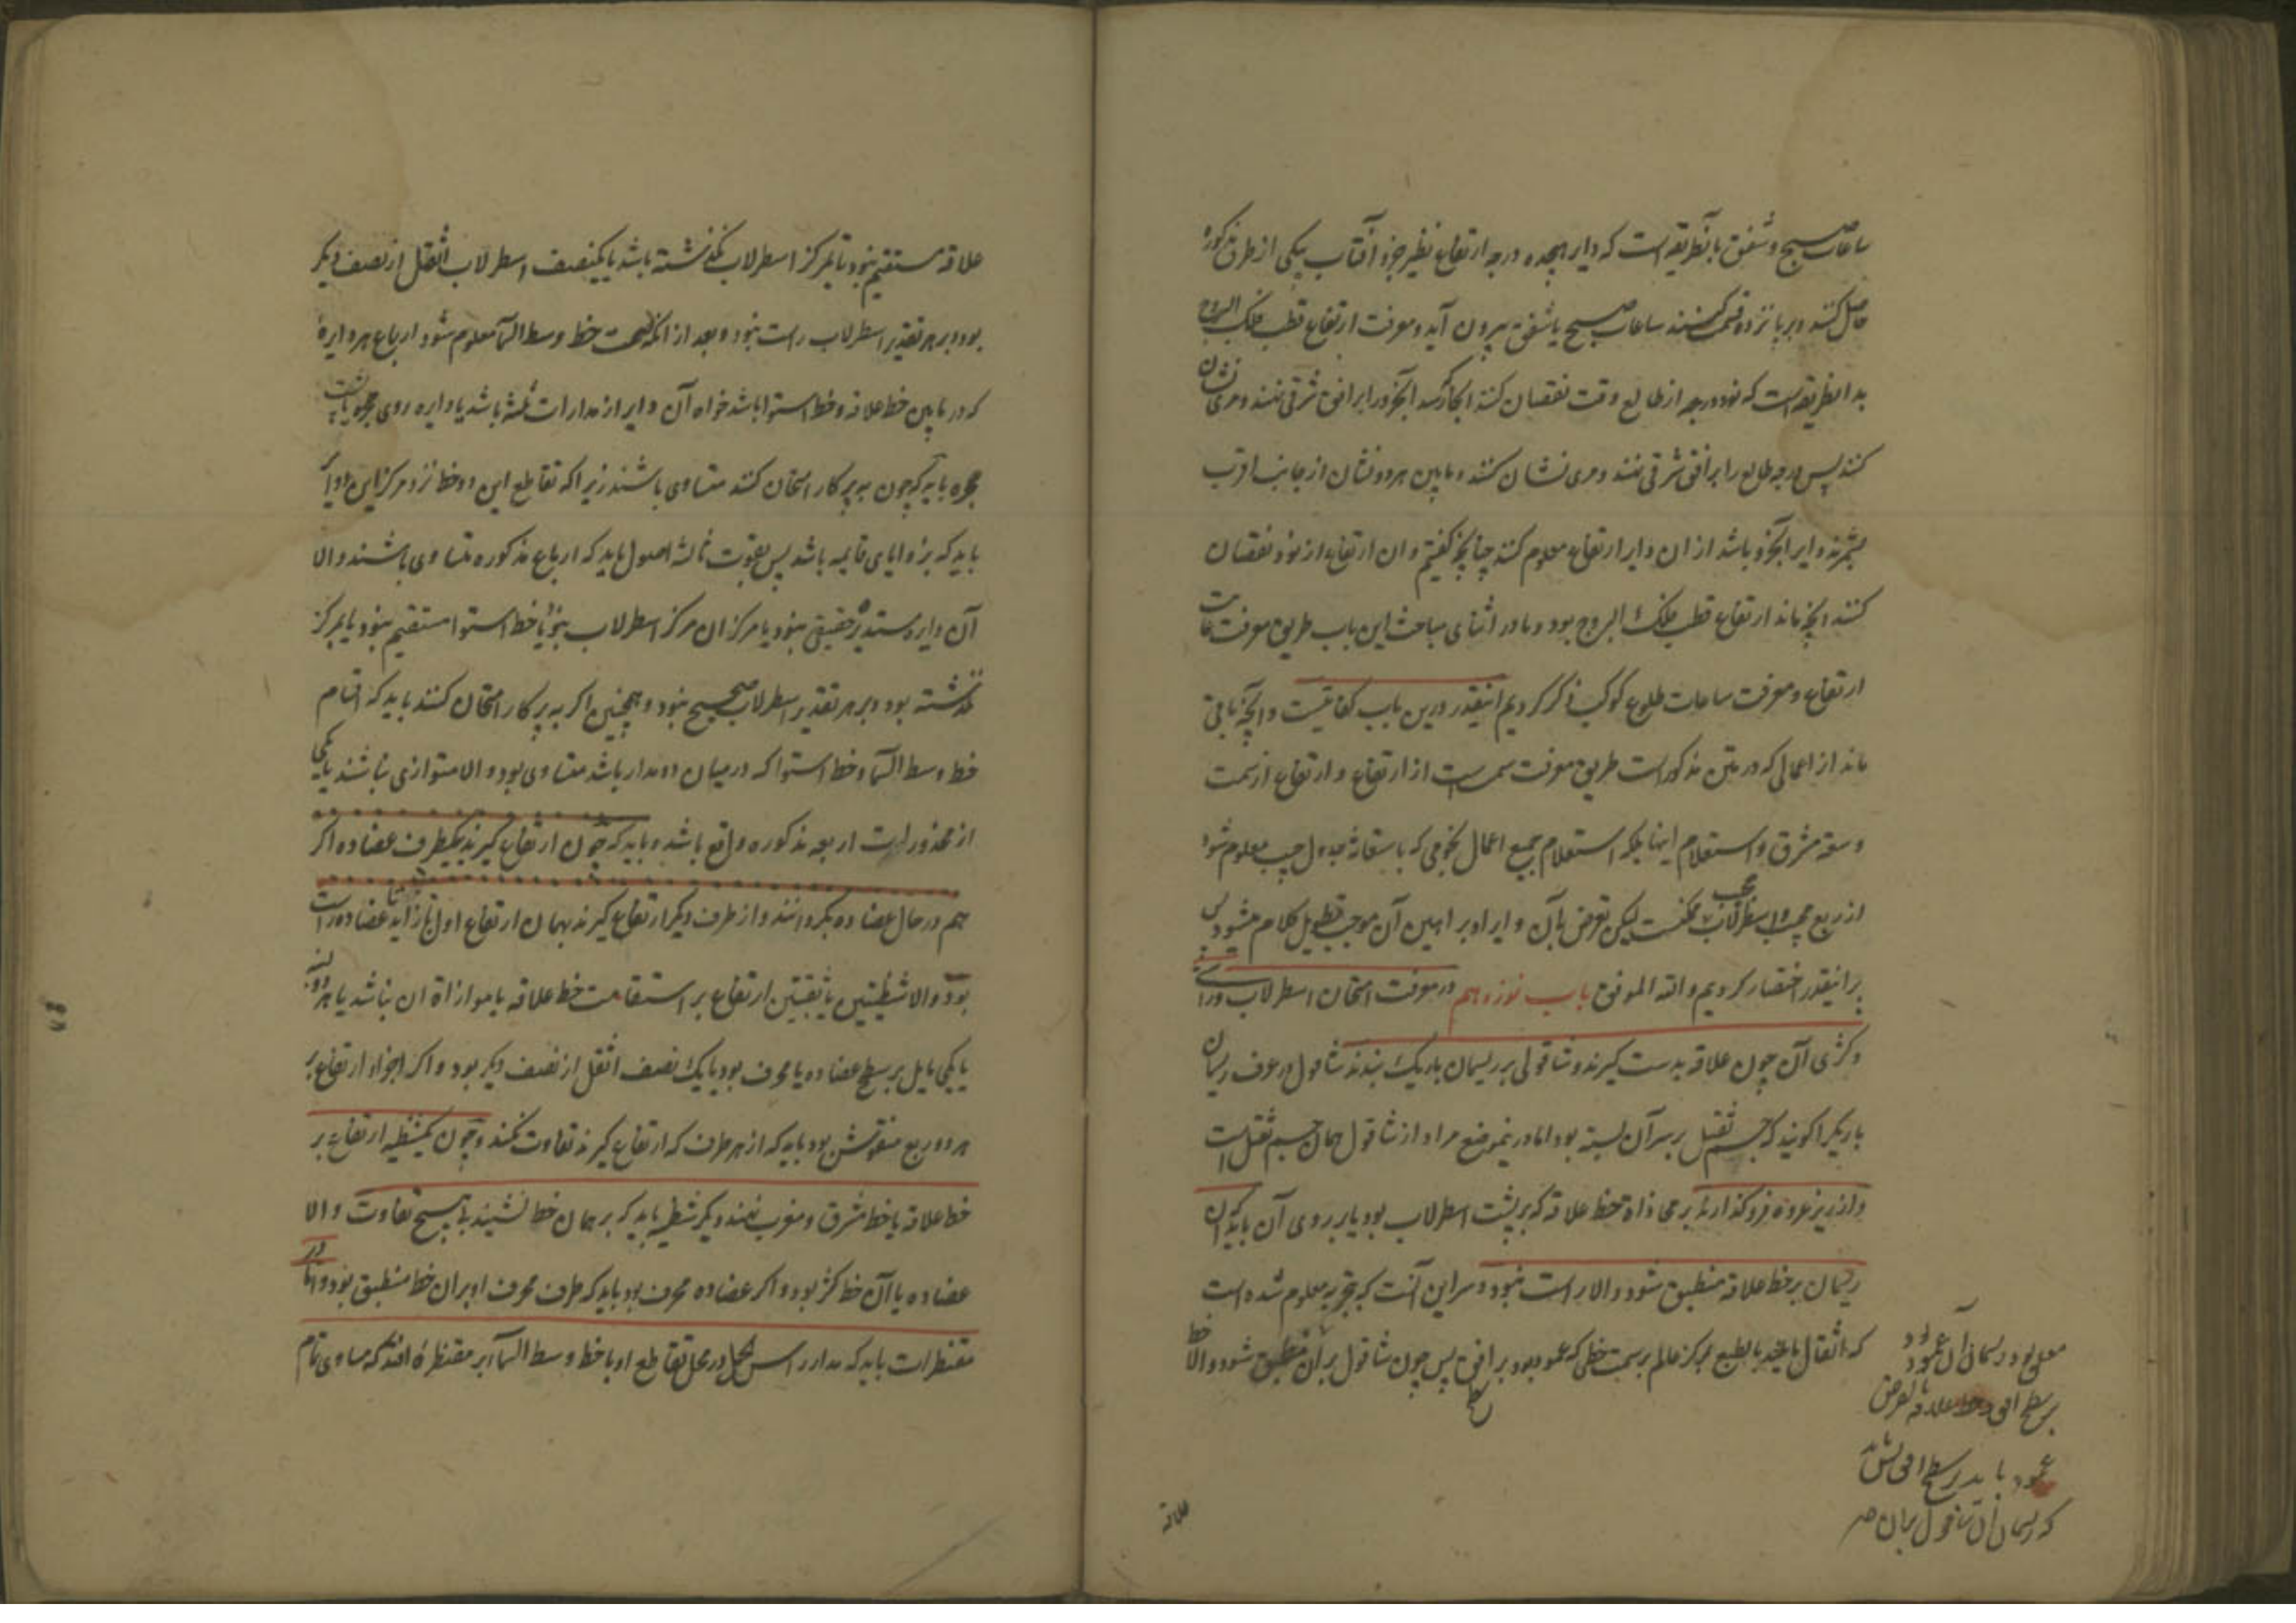 ساعات صبح و شفق بانطریقه است که دایر هجده درجه ارتفاع نظیر جزو آفتاب بیکی از طرق مذکوره
حاصل کنند و بر پانزده قسمت کنند ساعات صبح یا شفق بیرون آید و معرفت ارتفاع قطب فلک البروج
بدانطریقست که نود درجه از طالع وقت نقصان کنند انجا که رسد آنجزو را بر افق شرقی نهند و مری نشان
کنند پس درجه طالع را بر افق شرقی نهند و مری نشان کنند و مابین هر دو نشان از جانب اقرب
بشمرند دایر آنجزو باشد از ان دایر ارتفاع معلوم کنند چنانچه گفتیم و ان ارتفاع از نود نقصان
کنند انچه ماند ارتفاع قطب فلک البروج بود و ما در اثنای مباحث این باب طریق معرفت غایت
ارتفاع و معرفت ساعات طلوع کوکب ذکر کردیم اینقدر درین باب کفایتست و آنچه باقی
ماند از اعمالی که در متن مذکور است طریق معرفت سمت است از ارتفاع و ارتفاع از سمت
و سعة مشرق و استعلام اینها بلکه استعلام جمیع اعمال نجومی که باستعانة جدول جیب معلوم شود
از ربع مجیب اسطرلاب ممکنست لیکن تعرض بآن و ایراد براهین آن موجب تطویل کلام میشود پس
برا ینقدر اختصار کردیم والله الموفق باب نوزدهم در معرفت امتحان اسطرلاب و راستی
و کژی آن چون علاقه بدست گیرند و شاقولی بر ریسمان باریک بندند شاقول در عرف ریسمان
باریک را گویند که جسم ثقیل بر سر آن بسته بود اما درینموضع مراد از شاقول همان جسم ثقیل است
و از زیر عروه فرو گذارند بر محاذاة خط علاقه که بر پشت اسطرلاب بود یا بر روی آن باید که آن
ریسمان بر خط علاقه منطبق شود و الا راست نبود و سر این آنست که بتجربه معلوم شده است
که اثقال مایلند بالطبع بمرکز عالم بر سمت خطی که عمود بود بر افق پس چون شاقول بر آن خط منطبق شود و الا
سطح
معلق بود ریسمان آن عمود بود
بر سطح افق و خط علاقه بالفرض
عمود باید بر سطح افق باشد
که ریسمان آن شاقول بران
علاقه
علاقه مستقیم نبود یا بمرکز اسطرلاب نگذشته باشد یا یکنصف اسطرلاب اثقل از نصف دیگر
بود و بر هر تقدیر اسطرلاب راست نبود و بعد از آنکه صحت خط وسط السما معلوم شود ارباع هر دایرۀ
که در مابین خط علاقه و خط استوا باشد خواه آن دایر از مدارات ثلثه باشد یا دایره روی حجره یا پشت
حجره باید که چون به پرکار امتحان کنند متساوی باشند زیرا که تقاطع این دو خط نزد مرکز این دوایر
باید که بزوایای قایمه باشد پس بقوت ثالثه اصول باید که ارباع مذکوره متساوی باشند و الا
آن دایره مستدیر حقیقی نبود یا مرکز ان مرکز اسطرلاب نبود یا خط استوا مستقیم نبود یا بمرکز
نگذشته بود و بر هر تقدیر اسطرلاب صحیح نبود و همچنین اگر به پرکار امتحان کنند باید که اقسام
خط وسط السما و خط استوا که در میان دو مدار باشد متساوی بود و الا متوازی نباشند یا یکی
از محذورات اربعه مذکوره واقع باشد و باید که چون ارتفاع گیرند بیکطرف عضاده اگر
هم در حال عضاده بگردانند و از طرف دیگر ارتفاع گیرند بهمان ارتفاع اول باز آید تا عضاده راست
بود و الا شظیتین یا ثقبتین ارتفاع بر استقامت خط علاقه یا موازاة ان نباشد یا هر دو
یا یکی مایل بر سطح عضاده یا محرف بود یا یک نصف اثقل از نصف دیگر بود و اگر اجزاء ارتفاع بر
هر دو ربع منقوش بود باید که از هر طرف که ارتفاع گیرند تفاوت نکند و چون یکشظیه ارتفاع بر
خط علاقه یا خط مشرق و مغرب نهند دیگر شظیه باید که بر همان خط نشیند بی هیچ تفاوت و الا
عضاده یا آن خط کژ بود و اگر عضاده محرف بود باید که طرف محرف او بران خط منطبق بود و اما در
مقنطرات باید که مدار راس الحمل در محل تقاطع او با خط وسط السما بر مقنطرۀ افتد که مساوی تمام